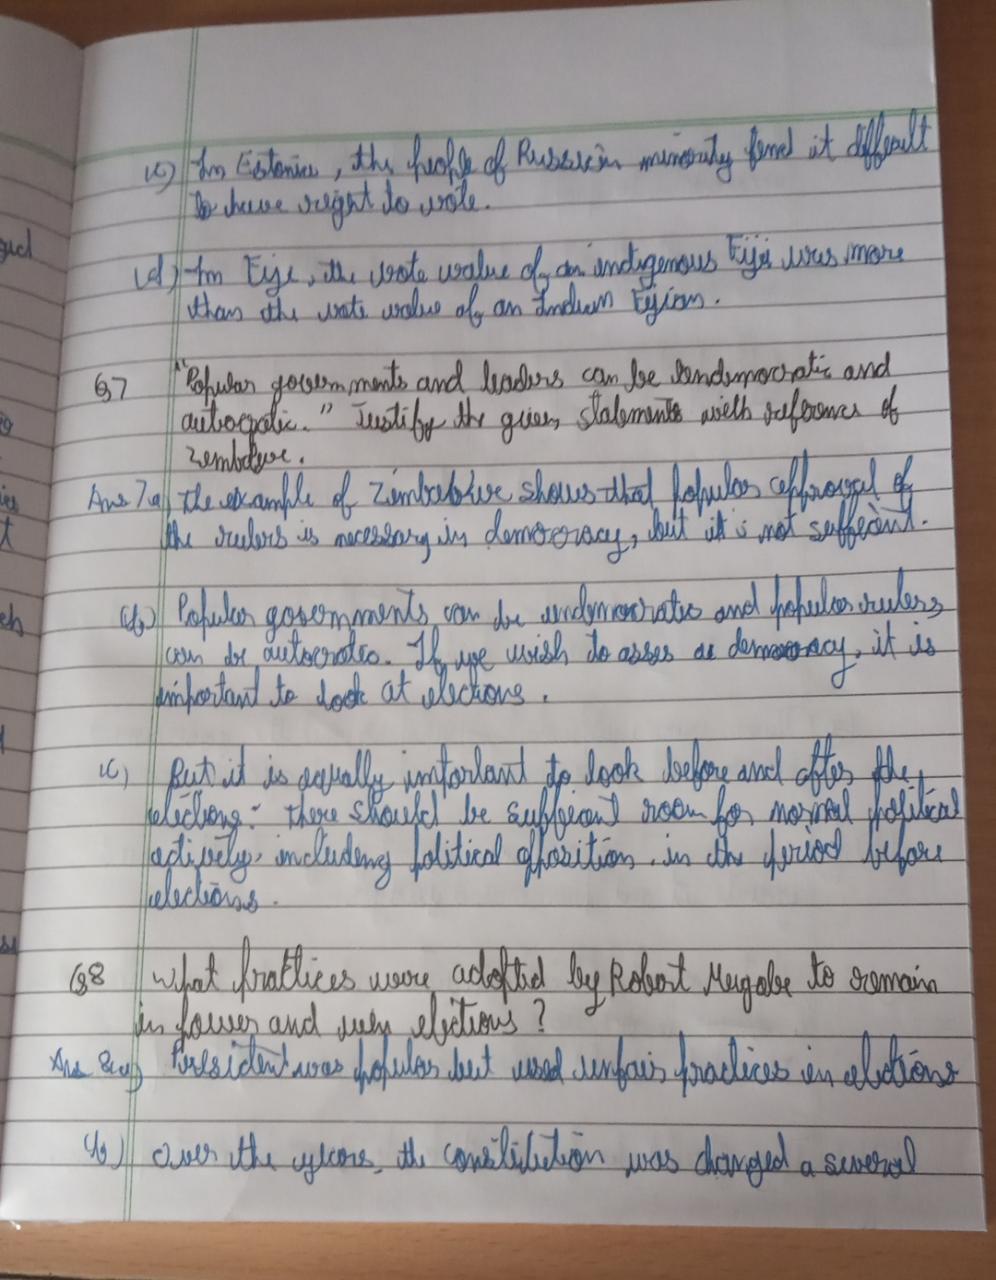 (c) In Estonia, the people of Russian minority find it difficult
to have right to vote.
(d) In Fiji, the vote value of an indigenous Fiji was more
than the vote value of an Indian Fijian.
Q7 "Popular governments and leaders can be undemocratic and
autocratic." Justify the given statements with reference of
Ans 7 a) the example of Zimbabwe shows that popular approval of
the rulers is necessary in democracy, but it is not sufficient.
(b) Popular governments can be undemocratic and popular rulers
can be autocratic. If we wish to asses a democracy, it is
important to look at elections.
(c) But it is equally important to look before and after the
elections. there should be sufficient room for normal political
activity, including political opposition, in the period before
elections.
Q8 What practices were adopted by Robert Mugabe to remain
in power and win elections?
Ans 8 a) President was popular but used unfair practices in elections
(b) Over the years, the constitution was changed a several